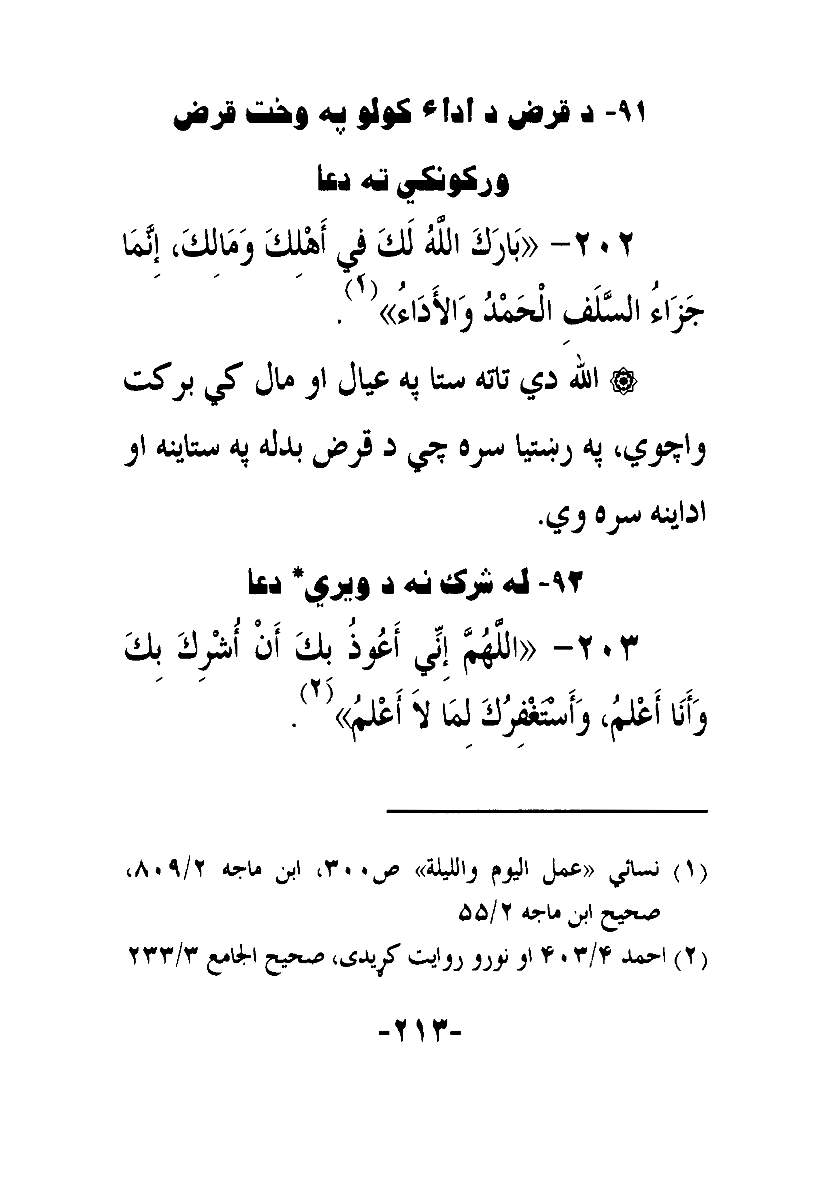 ۹۱- د قرض د اداء کولو په وخت قرض
ورکونکي ته دعا
۲۰۲- «بَارَكَ اللَّهُ لَكَ فِي أَهْلِكَ وَمَالِكَ، إِنَّمَا
جَزَاءُ السَّلَفِ الْحَمْدُ وَالأَدَاءُ»(۱).
۞ الله دي تاته ستا په عیال او مال کي برکت
واچوي، په رښتیا سره چي د قرض بدله په ستاینه او
اداینه سره وي.
۹۲- له شرک نه د ویري* دعا
۲۰۳- «اللَّهُمَّ إِنِّي أَعُوذُ بِكَ أَنْ أُشْرِكَ بِكَ
وَأَنَا أَعْلَمُ، وَأَسْتَغْفِرُكَ لِمَا لاَ أَعْلَمُ»(۲).
(۱) نسائي «عمل اليوم والليلة» ص۳۰۰، ابن ماجه ۸۰۹/۲،
صحيح ابن ماجه ۵۵/۲
(۲) احمد ۴۰۳/۴ او نورو روایت کړیدی، صحیح الجامع ۲۳۳/۳
-۲۱۳-